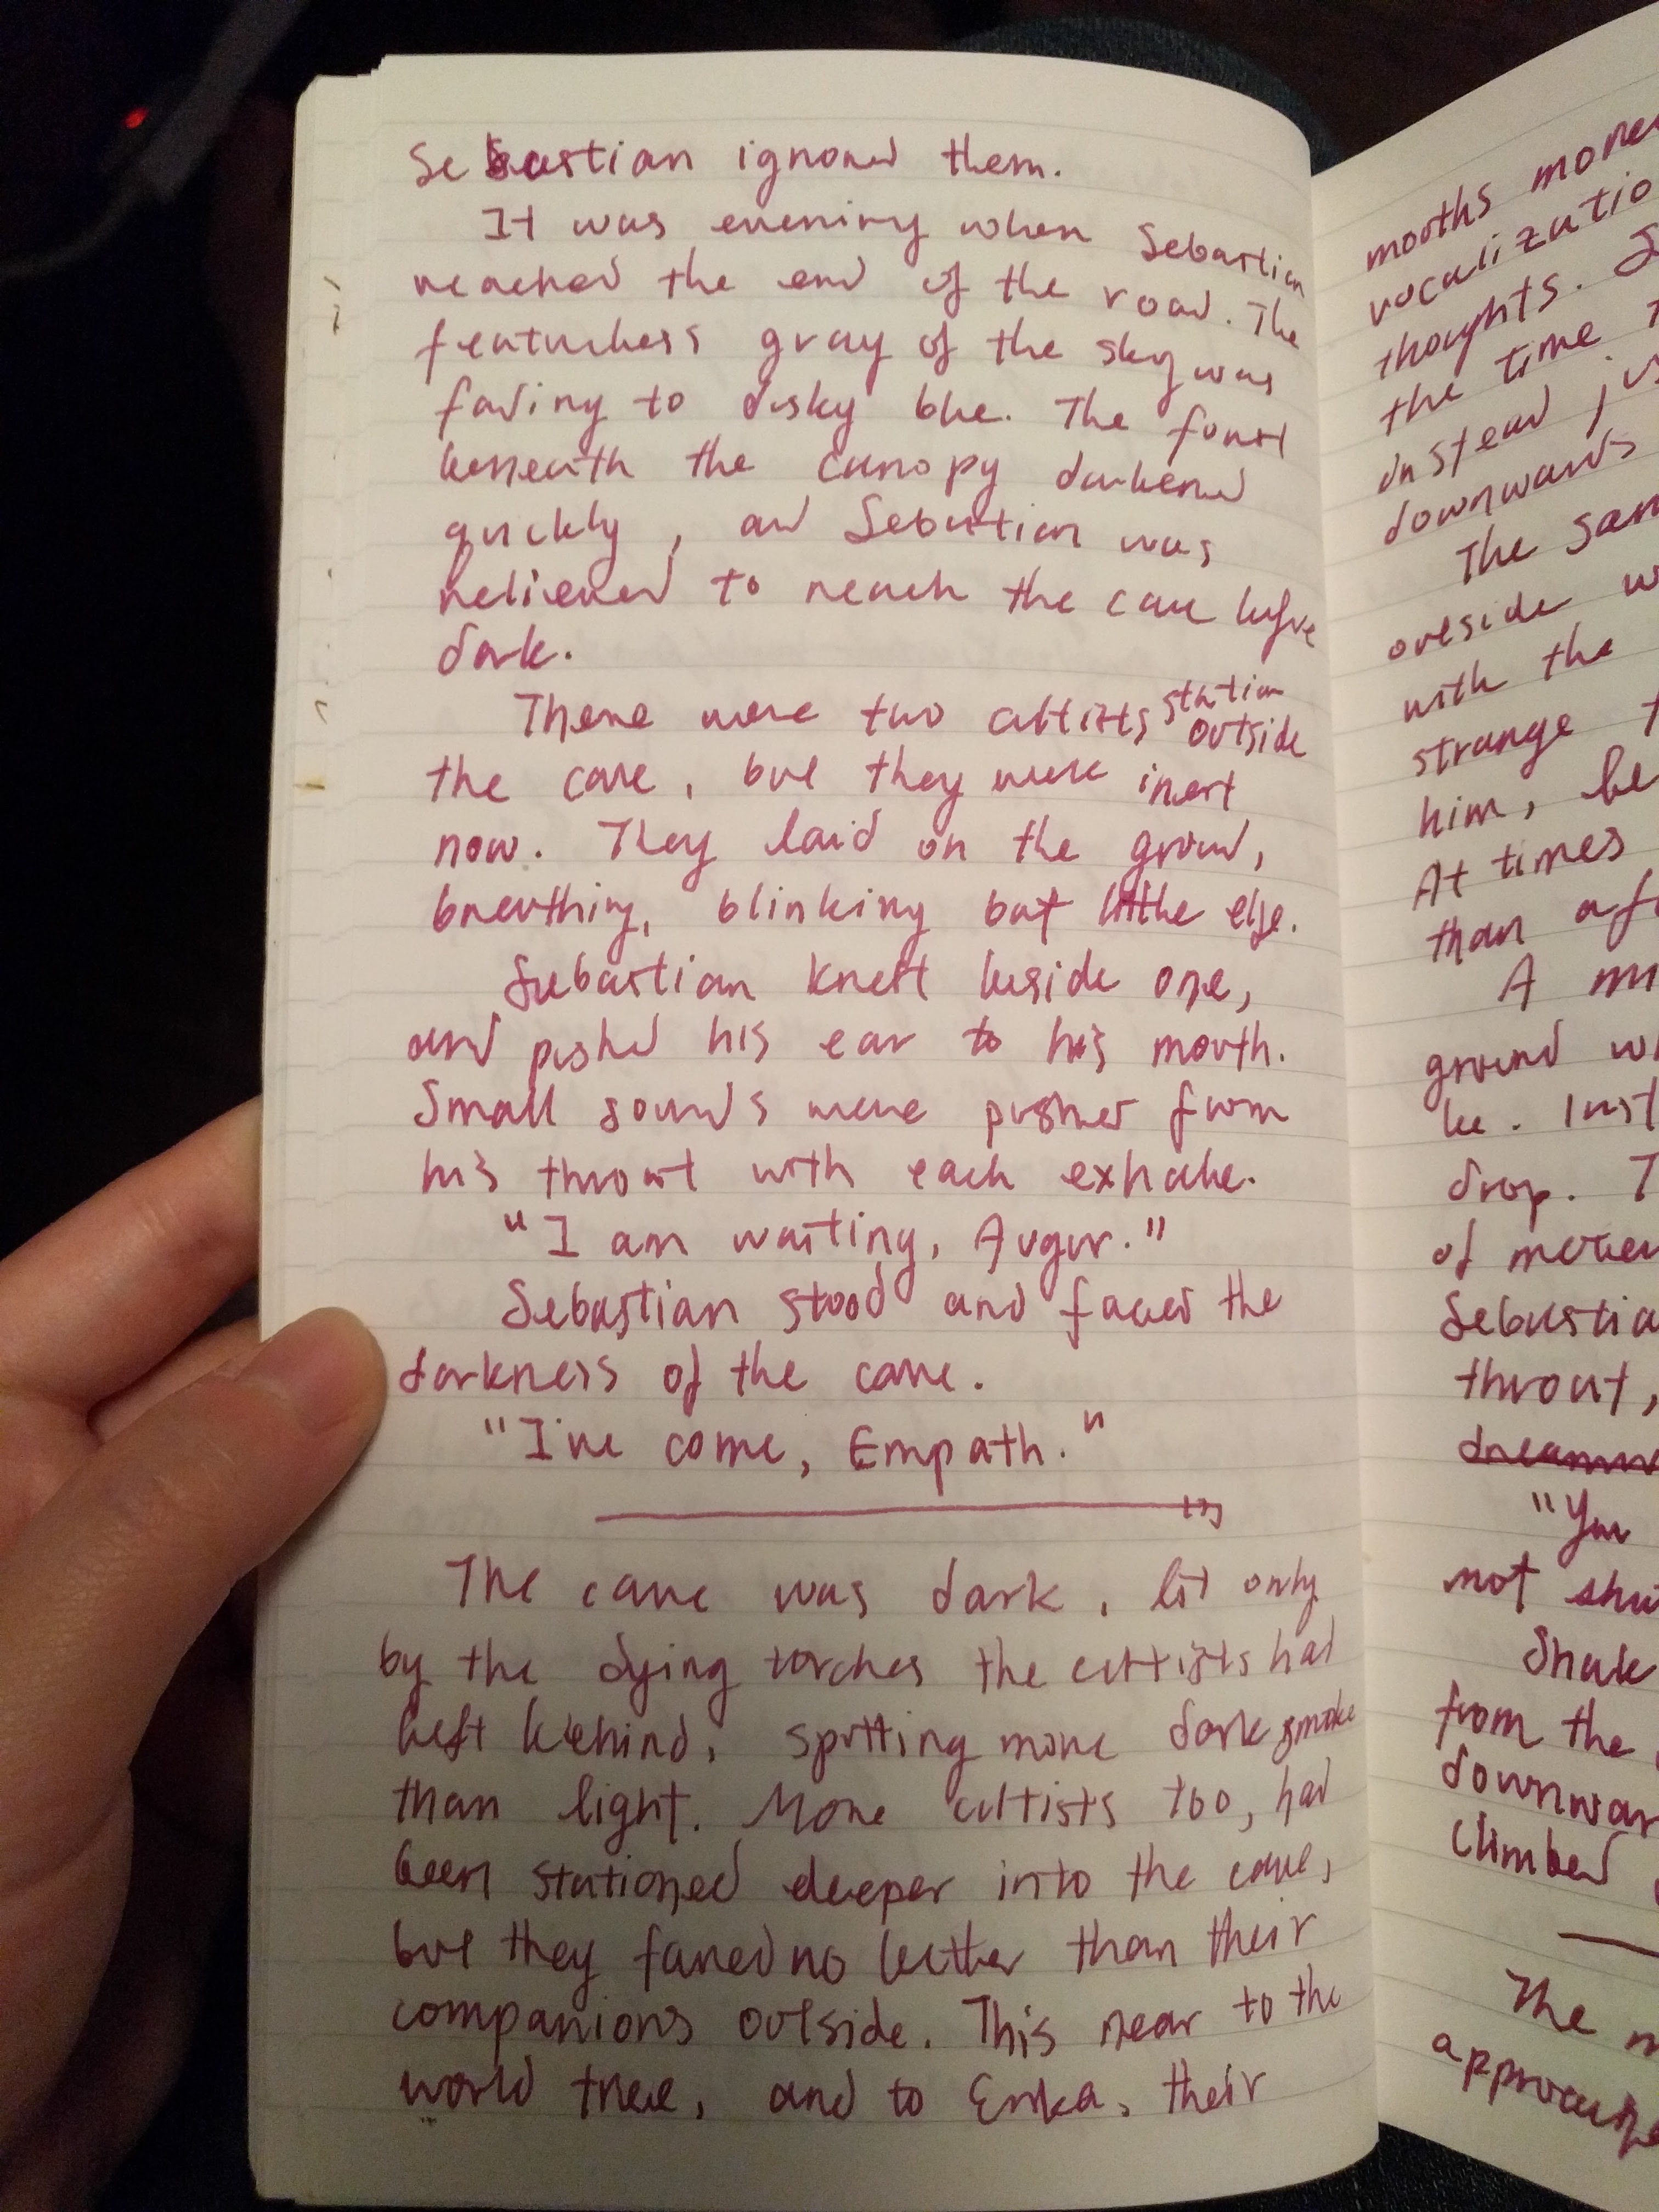 Sebastian ignored them.
It was evening when Sebastian
reached the end of the road. The
featureless gray of the sky was
fading to dusky blue. The forest
beneath the canopy darkened
quickly, and Sebastian was
relieved to reach the cave before
dark.
There were two cultists station outside
the cave, but they were inert
now. They laid on the ground,
breathing, blinking but little else.
Sebastian knelt beside one,
and pushed his ear to his mouth.
Small sounds were pushed from
his throat with each exhale.
"I am waiting, Augur."
Sebastian stood and faced the
darkness of the cave.
"I've come, Empath."
The cave was dark, lit only
by the dying torches the cultists had
left behind, spitting more dark smoke
than light. More cultists too, had
been stationed deeper into the cave,
but they fared no better than their
companions outside. This near to the
world tree, and to Erika, their
mouths more
thoughts.
the time
instead
downwards
The
outside
with the
strange
him,
At times
than a
A
ground
be.
drop.
of
throat,
"You
not
from the
climbed
The